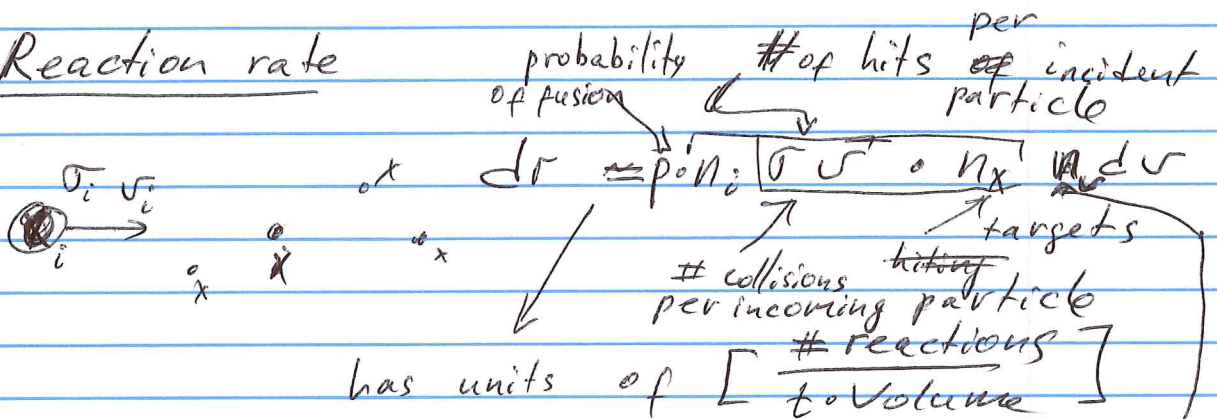 Reaction rate
probability of fusion
# of hits per incident particle
σᵢ vᵢ
i
x
x
x
x
dr = p · nᵢ σ v · nₓ nᵥ dv
targets
# collisions
per incoming particle
has units of [ # reactions / t · Volume ]